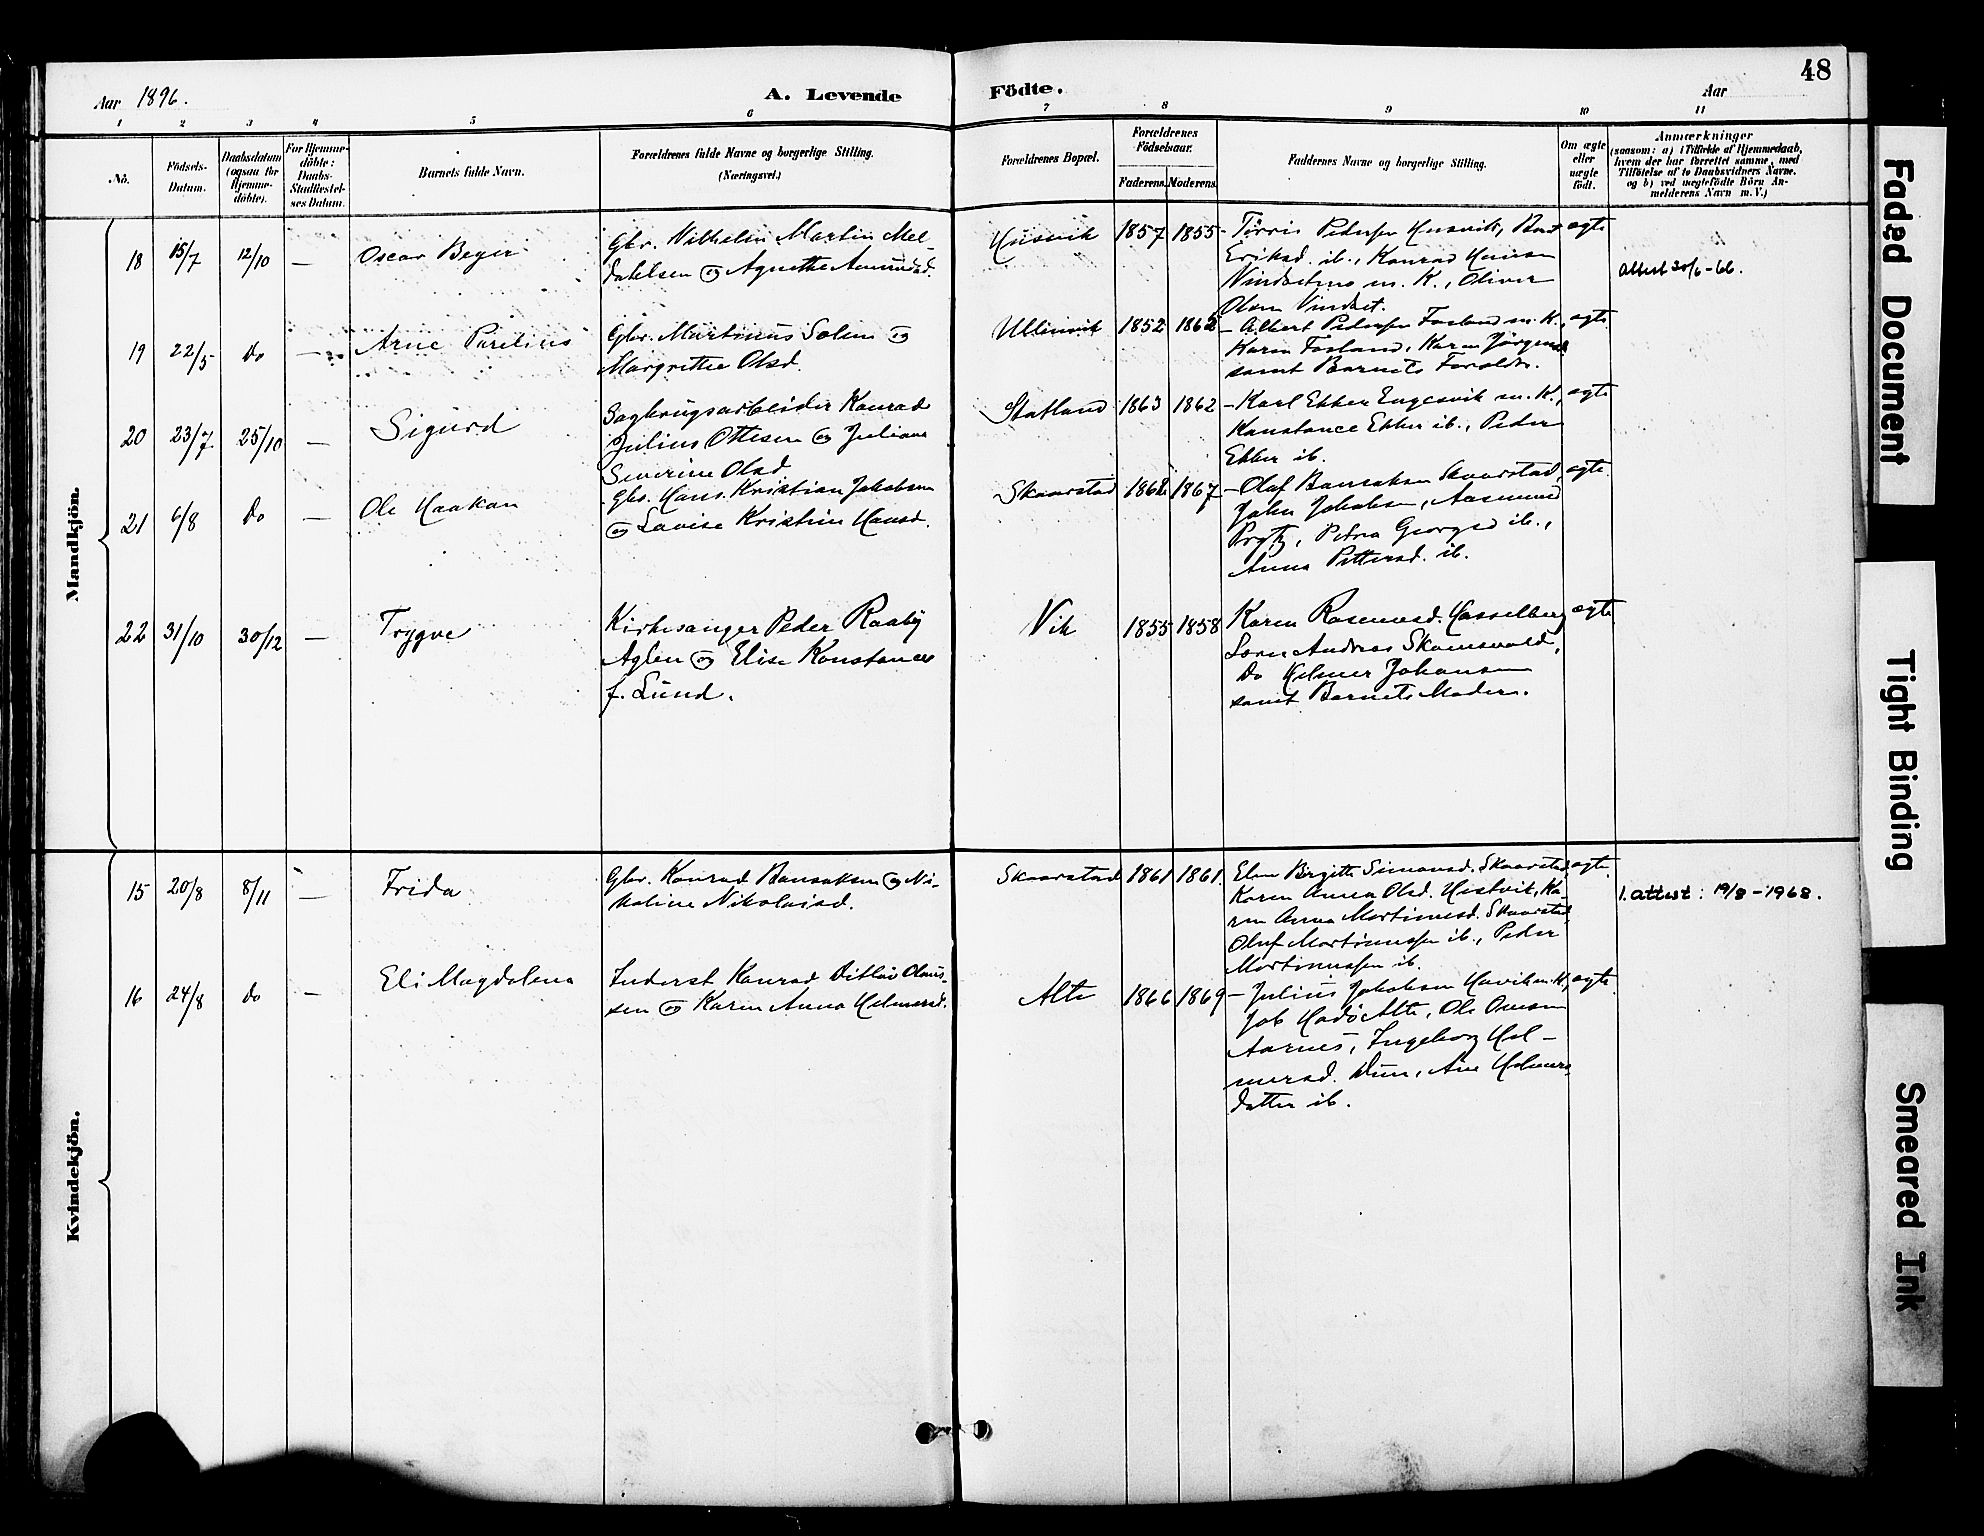 48
Aar 1896.
A. Levende Födte.
Aar
1 2 3 4 5 6 7 8 9 10 11
No.
Födsels-Datum.
Daabsdatum (ogsaa for Hjemmedöbte).
For Hjemmedöbte: Daabs-Stadfæstelses Datum.
Barnets fulde Navn.
Forældrenes fulde Navne og borgerlige Stilling.
(Næringsvei.)
Forældrenes Bopæl.
Forældrenes Födselsaar.
Faderens. Moderens.
Faddernes Navne og borgerlige Stilling.
Om ægte eller uægte födt.
Anmærkninger
(saasom: a) i Tilfælde af Hjemmedaab,
hvem der har forrettet samme, med
Tilföielse af to Daabsvidners Navne.
og b) ved uægtefödte Börn An-
melderens Navn m. V.)
Mandkjön.
18 15/7 12/10 — Oscar Beyer
Gbr. Vilhelm Martin Mel-
dalsen og Agnethe Amundsd.
Husvik 1857 1855
- Tørris Pedersen Husvik,
Eriksd. ib., Konrad Hansen
Vindsetmo m. K., Oliver
Olsen Vindset.
ægte
Attest 30/6-66.
19 22/5 do — Arne Parelius
Gbr. Martinus Solem og
Margrethe Olsd.
Ullinvik 1852 1862
- Albert Pedersen Fosland m. K.,
Karen Fosland, Karen Jørgensd.
samt Barnets Forældre.
ægte
20 23/7 25/10 — Sigurd
Sagbrugsarbeider Konrad
Julius Ottesen og Juliane
Severine Olsd.
Statland 1863 1862
- Karl Ekker Engesvik m. K.,
Konstance Ekker ib., Peder
Ekker ib.
ægte
21 6/8 do — Ole Haakon
Gbr. Hans Kristian Jakobsen
og Lovise Kristine Hansd.
Skaarstad 1868 1867
- Olaf Bensaksen Skaarstad,
John Jakobsen, Aasmund
Prytz, Petra Georgsd ib.,
Anna Pettersd. ib.
ægte
22 31/10 30/12 — Trygve
Kirkesanger Peder Raaby
Aglen og Elise Konstance
f. Lund.
Vik 1855 1858
Karen Rasmusd. Hasselberg
Loren Andreas Skomsvold,
do Helmer Johansen
samt Barnets Moder.
ægte
Kvindekjön.
15 20/8 8/11 — Frida
Gbr. Konrad Bensaksen og Ni-
koline Nikolaisd.
Skaarstad 1861 1861.
Elen Birgitte Simonsd. Skaarstad,
Karen Anna Olsd. Hestvik, Ka-
ren Anna Martinusd. Skaarstad
Oluf Martinussen ib., Peder
Martinussen ib.
ægte
1. attest: 19/8-1968.
16 24/8 do — Eli Magdalena
Inderst Konrad Ditlev Olaus-
sen og Karen Anna Helmersd.
Alte 1866 1869
- Julius Jakobsen Havik m. K.,
Job Alte, Ole
Aarnes, Ingeborg Hel-
mersd. Dun, Ane Helmers-
datter ib.
ægte
Faded Document
Tight Binding
Smeared Ink